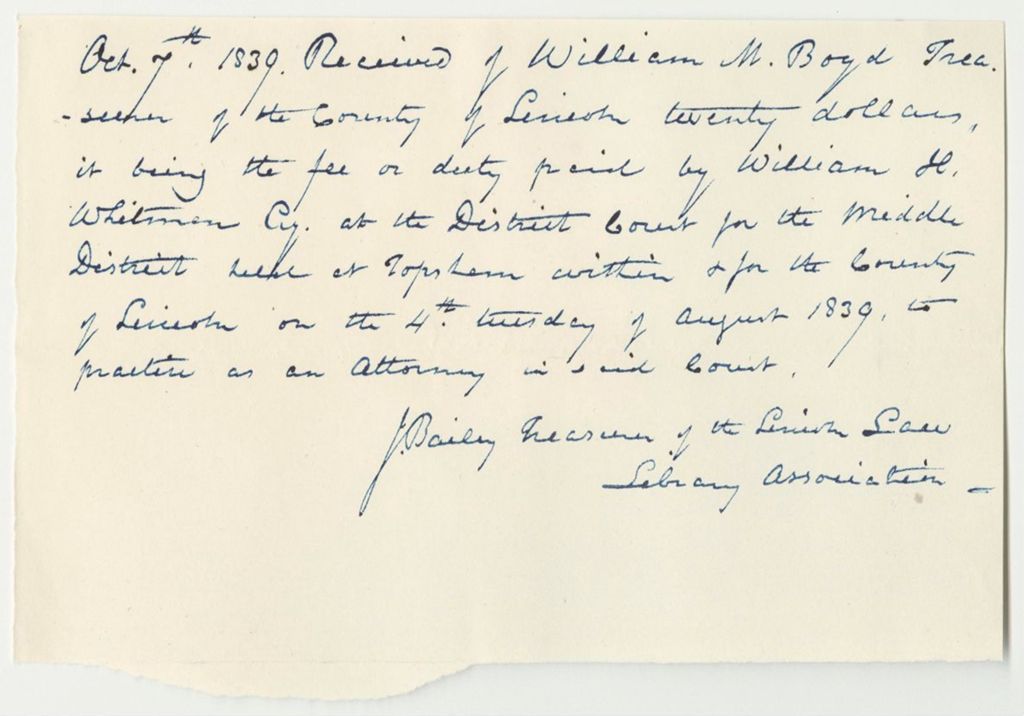 Oct. 7th. 1839. Received of William M. Boyd Trea.
-surer of the County of Lincoln twenty dollars,
it being the fee or duty paid by William H.
Whitman Esq. at the District Court for the Middle
District held at Topsham within & for the County
of Lincoln on the 4th. tuesday of August 1839, to
practise as an Attorney in said Court.
J. Bailey Treasurer of the Lincoln Law
Library Association -